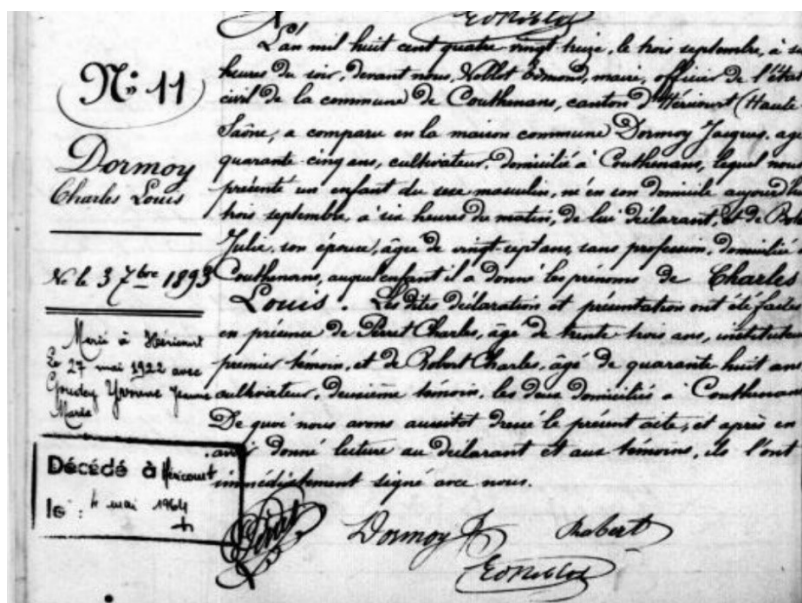 N° 11
Dormoy
Charles Louis
Né le 3 7bre 1893
Marié à Héricourt
le 27 mai 1922 avec
Yvonne Jeanne
Marie
Décédé à Héricourt
le : 4 mai 1964
L'an mil huit cent quatre vingt treize, le trois septembre, à
heures du soir, devant nous, Nollot Edmond, maire, officier de l'état
civil de la commune de Couthenans, canton d'Héricourt (Haute
Saône, a comparu en la maison commune Dormoy Jacques, agé
quarante cinq ans, cultivateur, domicilié à Couthenans, lequel nous
présenté un enfant du sexe masculin, né en son domicile aujourd'hui
trois septembre, à six heures du matin, de lui déclarant, et de
Julie, son épouse, âgée de vingt sept ans, sans profession, domiciliée
Couthenans, auquel enfant il a donné les prénoms de Charles
Louis. Les dites déclaration et présentation ont été faites
en présence de Perret Charles, âgé de trente trois ans, instituteur
premier témoin, et de Robert Charles, âgé de quarante huit ans
cultivateur, deuxième témoin, les deux domiciliés à Couthenans
De quoi nous avons aussitôt dressé le présent acte, et après en
avoir donné lecture au déclarant et aux témoins, ils l'ont
immédiatement signé avec nous.
Perret Dormoy J Robert
Ed Nollot